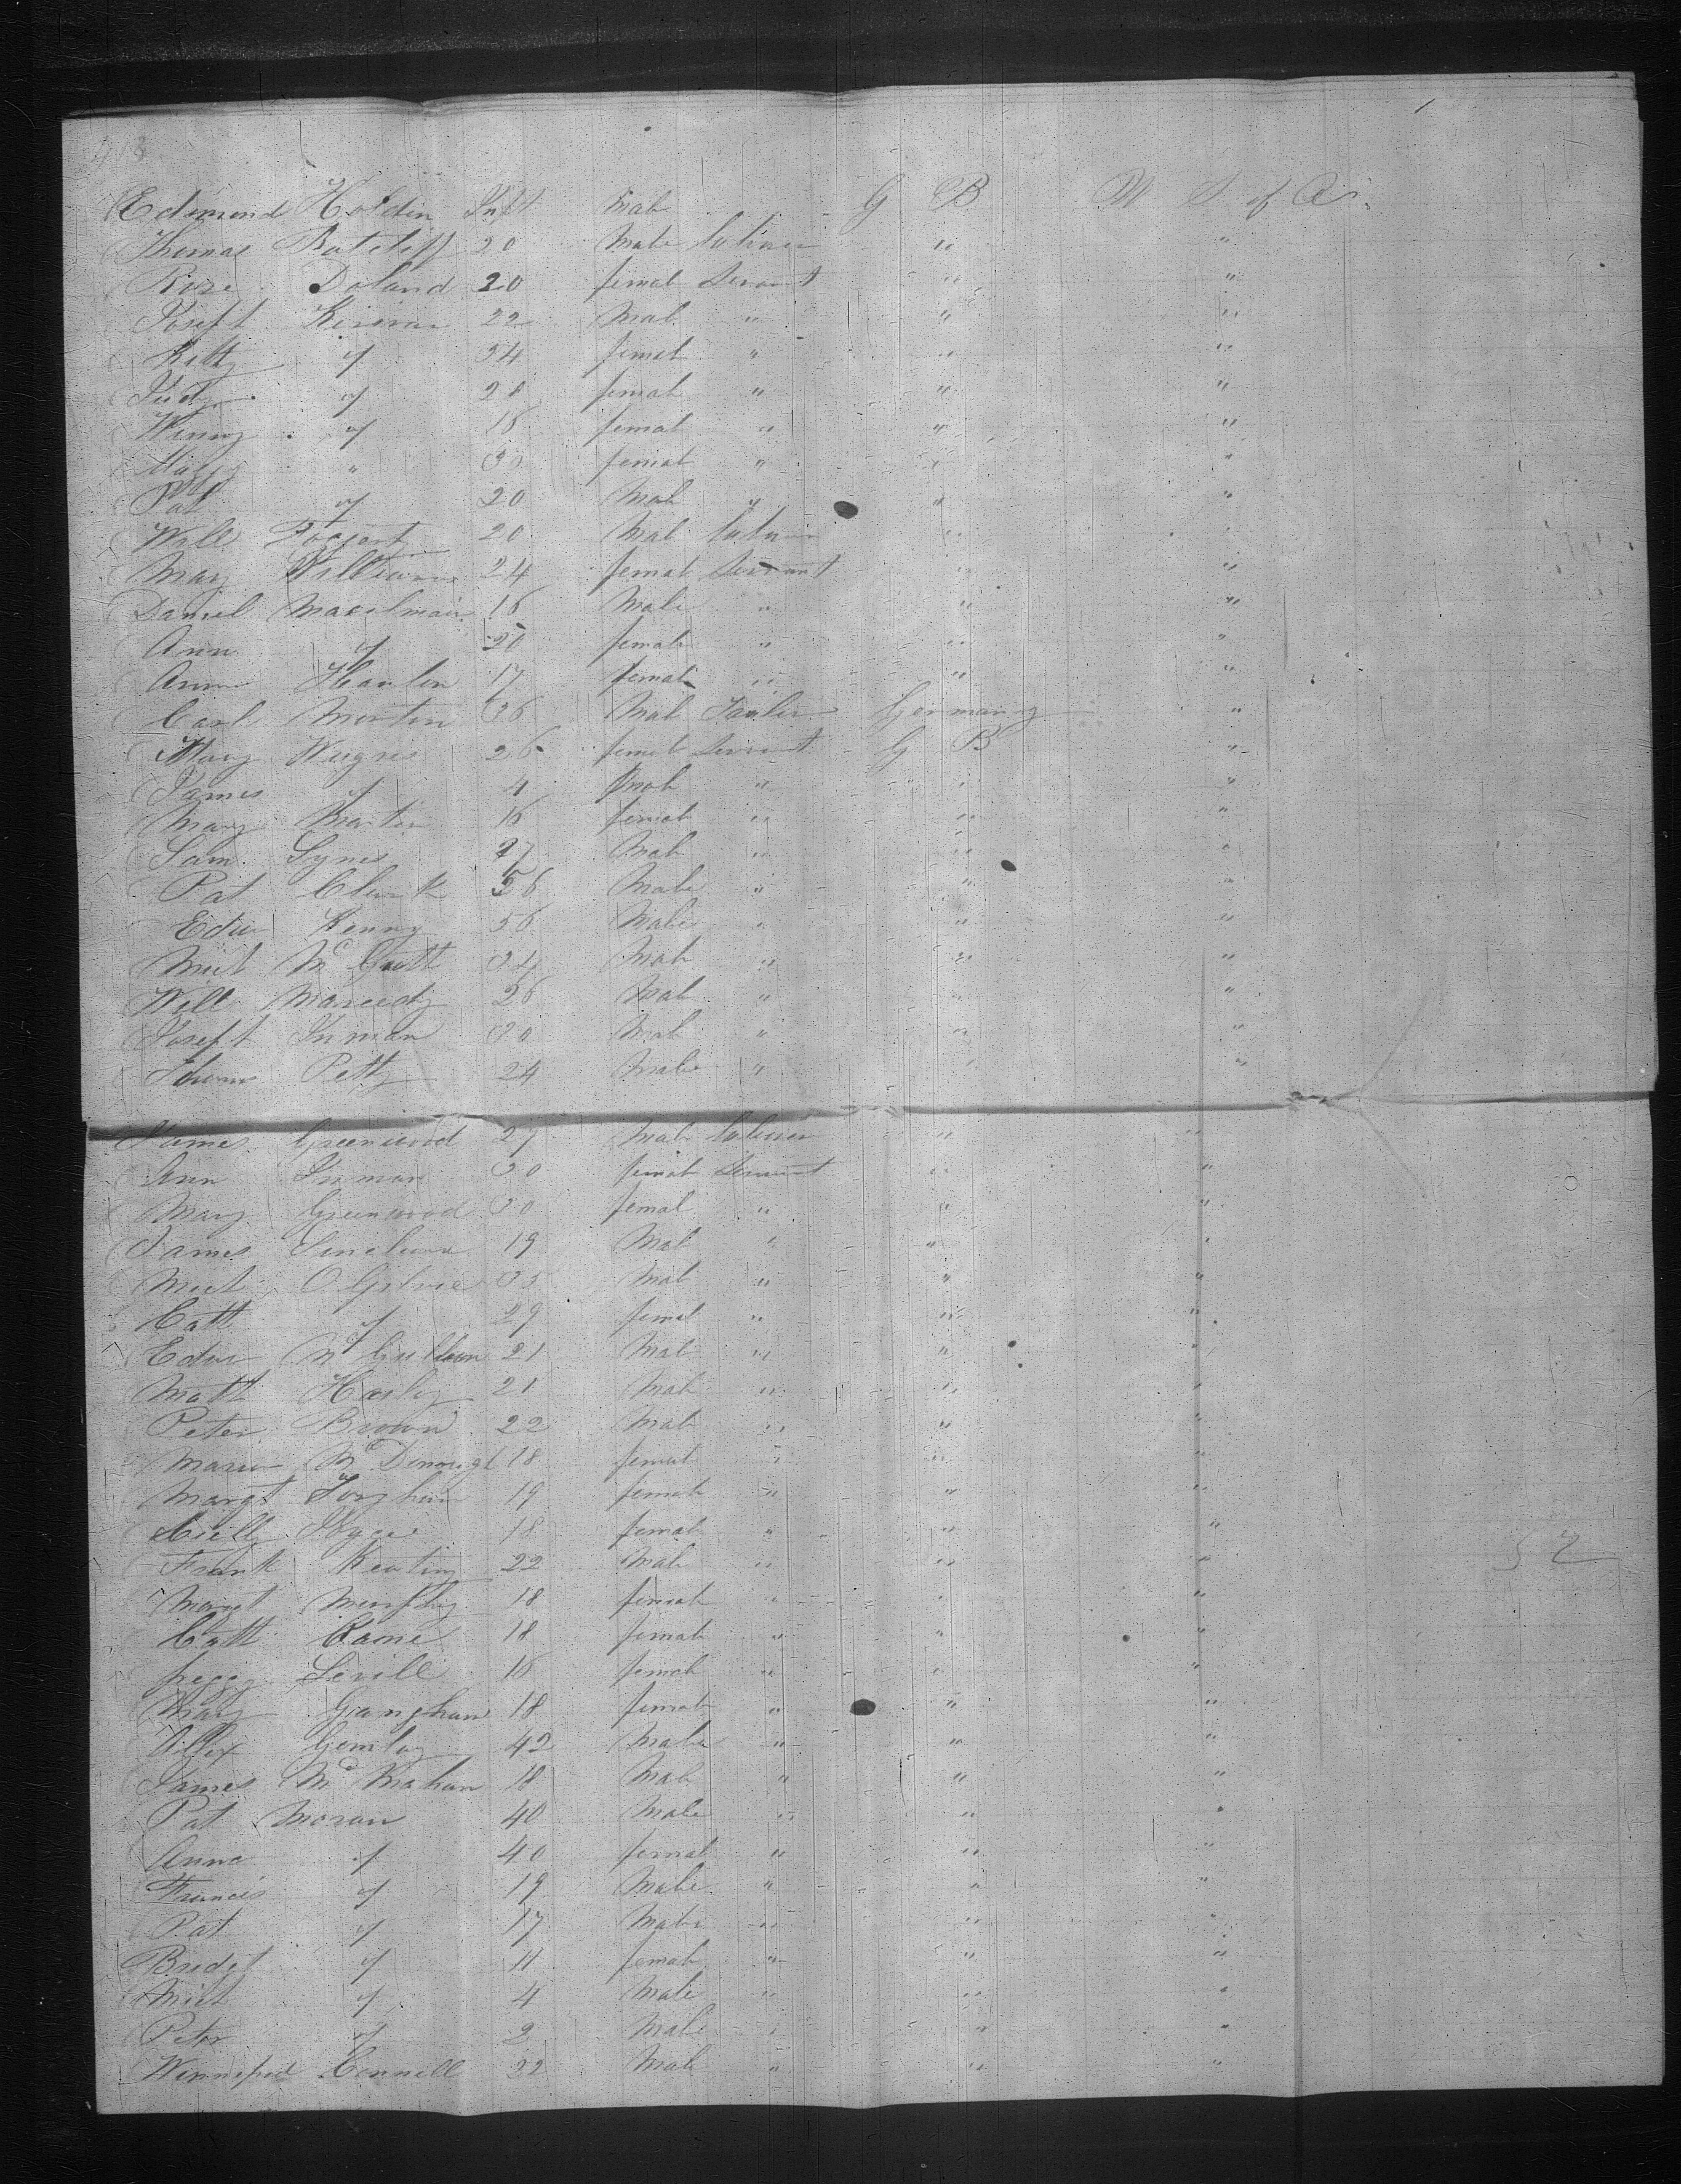 Edmond Holdin Inft Mal G B U S of A
Thomas Ratcliff 20 Male labourer " "
Rose Doland 20 femal Servant " "
Joseft Kirivan 22 Mal " " "
Kitty y 34 femal " " "
Judy y 28 femal " " "
Winny y 18 femal " " "
" 30 femal " " "
Pat y 20 Mal y " "
Will Fogarty 20 Mal labourer " "
Mary Killiwan 24 femal Servant " "
Daniel 16 Male " " "
Ann y 20 female " " "
Ann Hanlon 17 femal " " "
Carl Morton 36 Mal Tailer Germany "
Mary 26 femal Servant G B "
James y 4 Mal " " "
Mary Martin 16 femal " " "
Sam Synes 27 Mal " " "
Pat Clark 56 Male " " "
Edw Kenny 56 Male " " "
Mict 34 Mal " " "
Will 26 Mal " " "
Joseft Inman 30 Mal " " "
Petty 24 Male " " "
James Greenwood 27 Mal labourer " "
Ann Inman 30 femal Servant " "
Mary Greenwood 30 femal " " "
James 19 Mal " " "
Mict 35 Mal " " "
Catt y 29 femal " " "
Edw 21 Mal " " "
Matt 21 Mal " " "
Peter Brown 22 Mal " " "
Maria Mc Donnugh 18 femal " " "
Margt 19 femal " " "
18 femal " " "
Frank Keating 22 Mal " " "
Margt Murphy 18 femal " " "
Catt Kame 18 femal " " "
peggy Sevill 16 femal " " "
Mary Ganghan 18 femal " " "
Allex 42 Male " " "
James Mc Mahan 18 Mal " " "
Pat Moran 40 Male " " "
Anne y 40 femal " " "
Francis y 19 Male " " "
Pat y 17 Male " " "
Bridgt y 11 female " " "
Mict y 4 Male " " "
Peter y 2 Male " " "
Winnefred Connell 22 Mal " " "
52